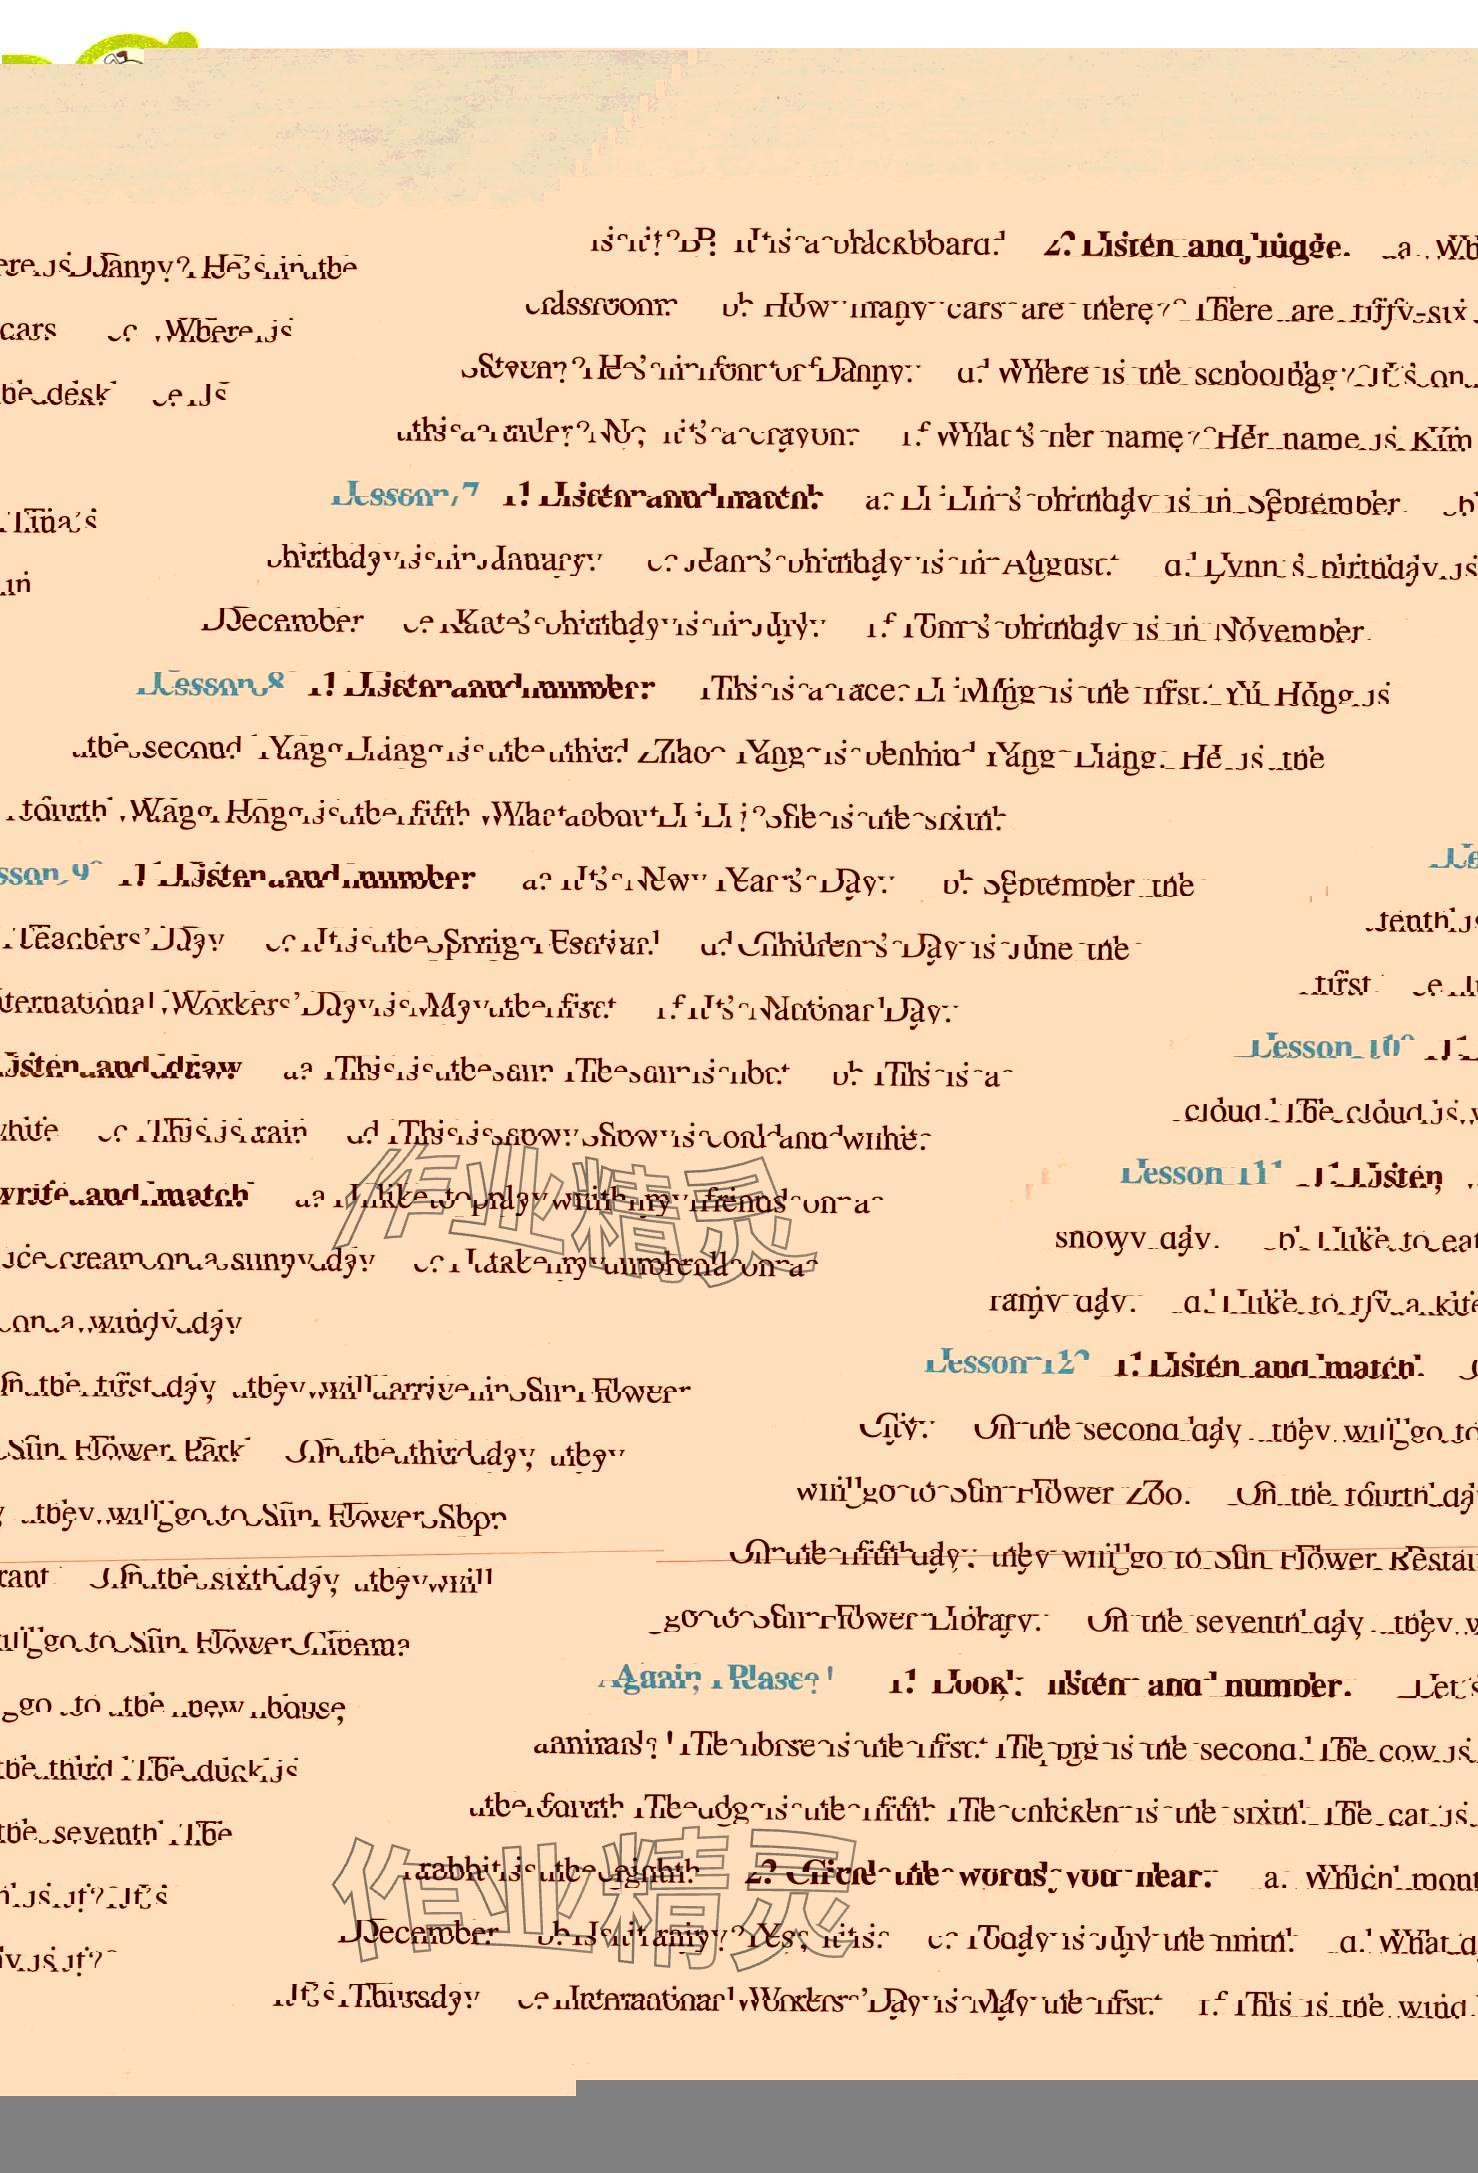 is it? B: It is a blackboard. 2. Listen and judge. a. Where is Danny? He's in the
classroom. b. How many cars are there? There are fifty-six cars. c. Where is
Steven? He's in front of Danny. d. Where is the schoolbag? It's on the desk. e. Is
this a ruler? No, it's a crayon. f. What's her name? Her name is Kim
Lesson 7 1. Listen and match. a. Li Lin's birthday is in September. b. Tina's
birthday is in January. c. Jean's birthday is in August. d. Lynn's birthday is in
December. e. Kate's birthday is in July. f. Tom's birthday is in November.
Lesson 8 1. Listen and number. This is a race. Li Ming is the first. Yu Hong is
the second. Yang Liang is the third. Zhao Yang is behind Yang Liang. He is the
fourth. Wang Hong is the fifth. What about Li Li? She is the sixth.
Lesson 9 1. Listen and number. a. It's New Year's Day. b. September the
tenth is Teachers' Day. c. It is the Spring Festival. d. Children's Day is June the
first. e. International Workers' Day is May the first. f. It's National Day.
Lesson 10 1. Listen and draw. a. This is the sun. The sun is hot. b. This is a
cloud. The cloud is white. c. This is rain. d. This is snow. Snow is cold and white.
Lesson 11 1. Listen, write and match. a. I like to play with my friends on a
snowy day. b. I like to eat ice cream on a sunny day. c. I take my umbrella on a
rainy day. d. I like to fly a kite on a windy day.
Lesson 12 1. Listen and match. On the first day, they will arrive in Sun Flower
City. On the second day, they will go to Sun Flower Park. On the third day, they
will go to Sun Flower Zoo. On the fourth day, they will go to Sun Flower Shop.
On the fifth day, they will go to Sun Flower Restaurant. On the sixth day, they will
go to Sun Flower Library. On the seventh day, they will go to Sun Flower Cinema.
Again, Please! 1. Look, listen and number. Let's go to the new house,
animals! The horse is the first. The pig is the second. The cow is the third. The duck is
the fourth. The dog is the fifth. The chicken is the sixth. The cat is the seventh. The
rabbit is the eighth. 2. Circle the words you hear. a. Which month is it? It's
December. b. Is it rainy? Yes, it is. c. Today is July the ninth. d. What day is it?
It's Thursday. e. International Workers' Day is May the first. f. This is the wind.
作业精灵
作业精灵